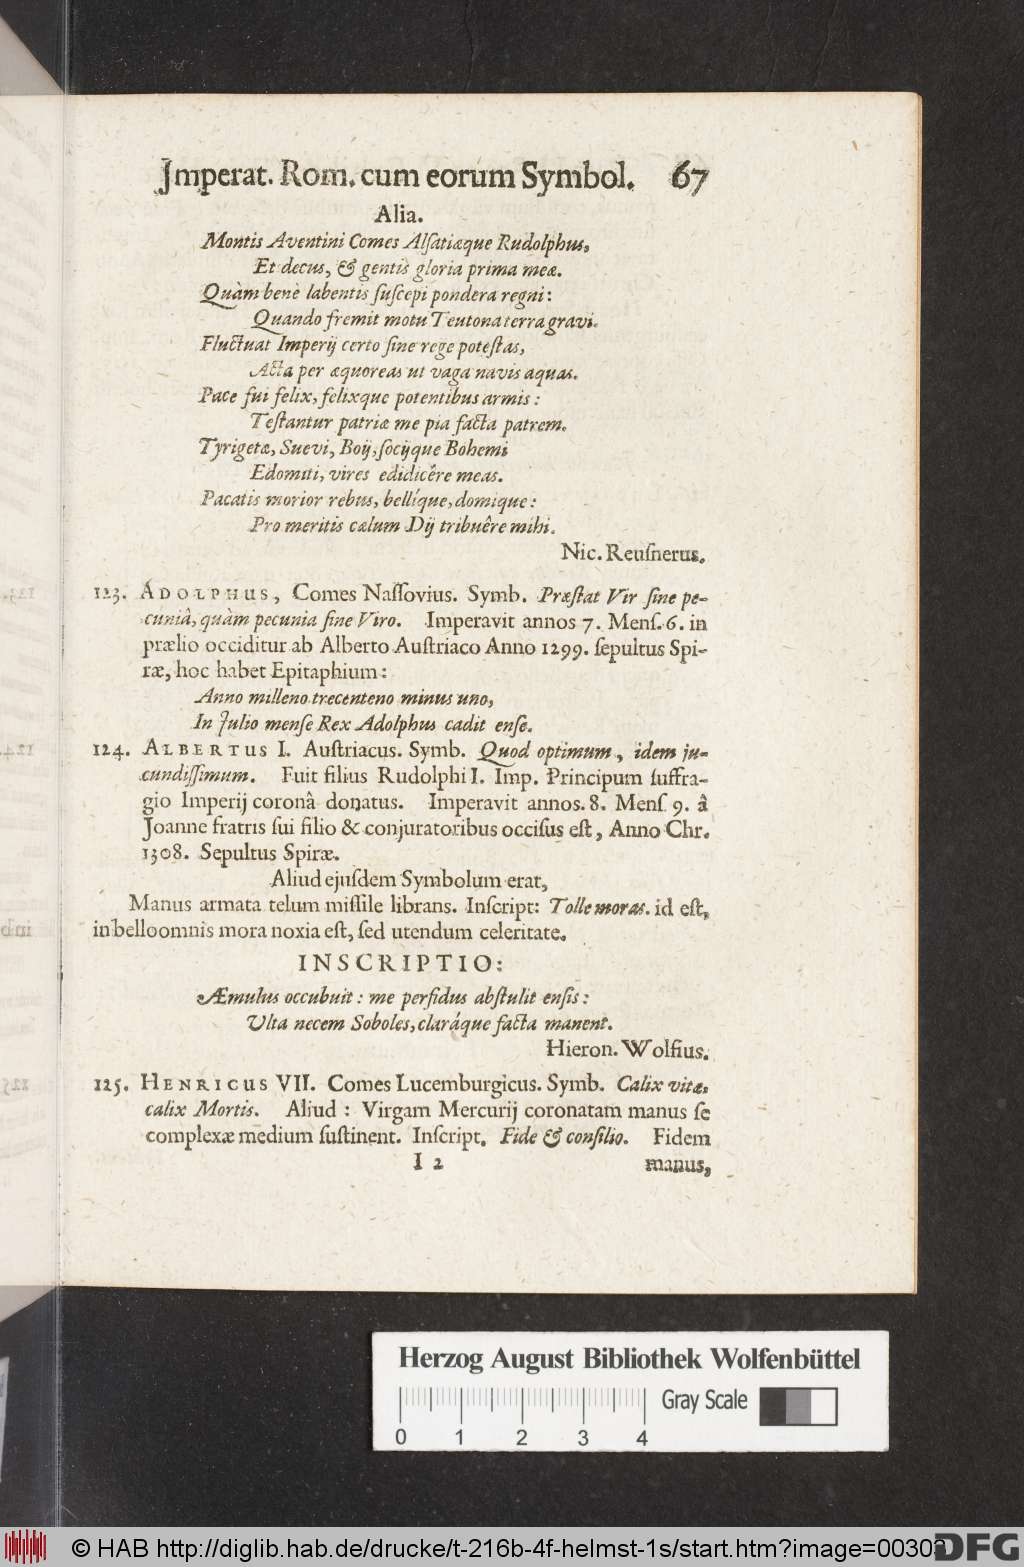 Jmperat. Rom. cum eorum Symbol. 67
Alia.
Montis Aventini Comes Alſatiæque Rudolphus,
Et decus, & gentis gloria prima meæ.
Quàm benè labentis ſuſcepi pondera regni:
Quando fremit motu Teutona terra gravi.
Fluctuat Imperij certo ſine rege poteſtas,
Acta per æquoreas ut vaga navis aquas.
Pace fui felix, felixque potentibus armis:
Teſtantur patriæ me pia facta patrem.
Tyrigetæ, Suevi, Boij, ſocijque Bohemi
Edomiti, vires edidicêre meas.
Pacatis morior rebus, bellíque, domique:
Pro meritis cælum Dij tribuêre mihi.
Nic. Reuſnerus.
123. ADOLPHUS, Comes Naſſovius. Symb. Præſtat Vir ſine pe-
cuniâ, quàm pecunia ſine Viro. Imperavit annos 7. Menſ. 6. in
prælio occiditur ab Alberto Auſtriaco Anno 1299. ſepultus Spi-
ræ, hoc habet Epitaphium:
Anno milleno trecenteno minus uno,
In Julio menſe Rex Adolphus cadit enſe.
124. ALBERTUS I. Auſtriacus. Symb. Quod optimum, idem ju-
cundiſſimum. Fuit filius Rudolphi I. Imp. Principum ſuffra-
gio Imperij coronâ donatus. Imperavit annos. 8. Menſ. 9. â
Joanne fratris ſui filio & conjuratoribus occiſus eſt, Anno Chr.
1308. Sepultus Spiræ.
Aliud ejuſdem Symbolum erat,
Manus armata telum miſſile librans. Inſcript: Tolle moras. id eſt,
in bello omnis mora noxia eſt, ſed utendum celeritate.
INSCRIPTIO:
Æmulus occubuit: me perfidus abſtulit enſis:
Ulta necem Soboles, claráque facta manent.
Hieron. Wolfius.
125. HENRICUS VII. Comes Lucemburgicus. Symb. Calix vitæ.
calix Mortis. Aliud: Virgam Mercurij coronatam manus ſe
complexæ medium ſuſtinent. Inſcript. Fide & conſilio. Fidem
I 2 manus,
Herzog August Bibliothek Wolfenbüttel
Gray Scale
0 1 2 3 4
© HAB http://diglib.hab.de/drucke/t-216b-4f-helmst-1s/start.htm?image=0030a
DFG